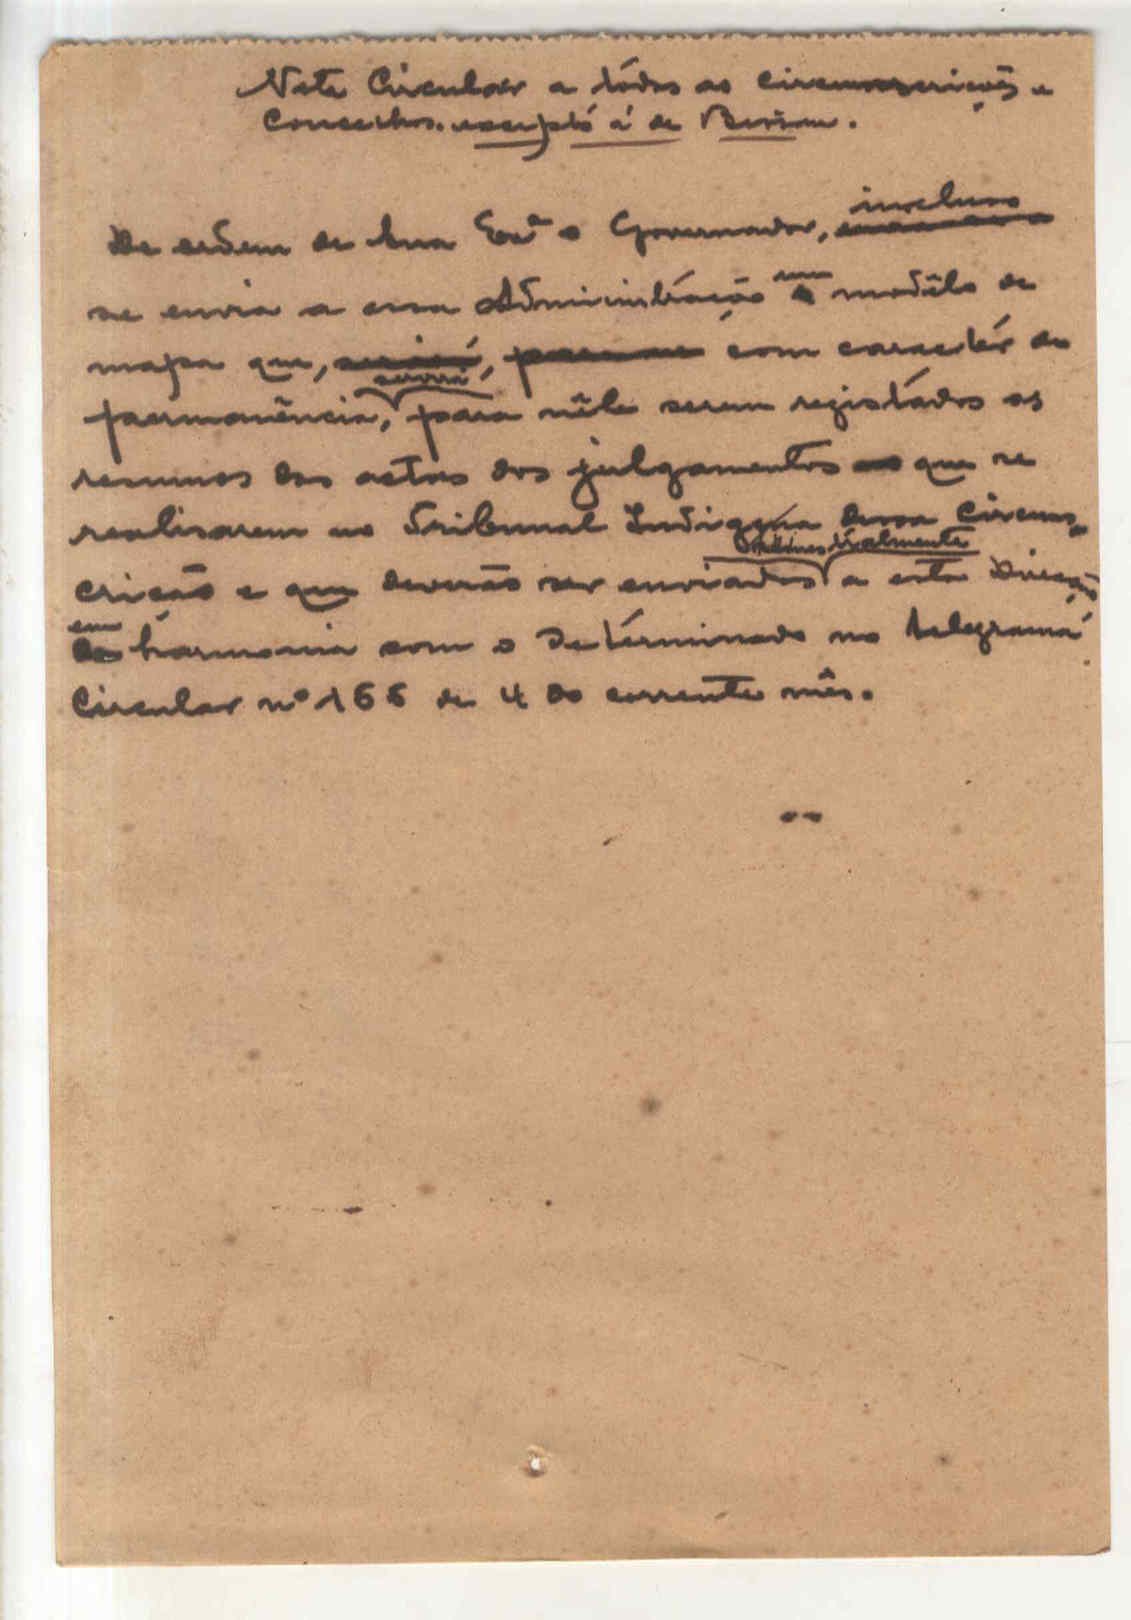 Nota Circular a tódas as circunscrições e
Concelhos. excepto á de Bissau.
De ordem de Sua Exª o Governador, incluso
se envia a essa Administração um modêlo de
mapa que, com caracter de
servirá,
permanência, para nêle serem registádos os
resumos das actas dos julgamentos que se
realisarem no Tribunal Indigena dessa Circuns-
trimestralmente
crição e que deverão ser enviados a esta Direcção
em harmonia com o determinado no telegrama
Circular nº 166 de 4 do corrente mês.